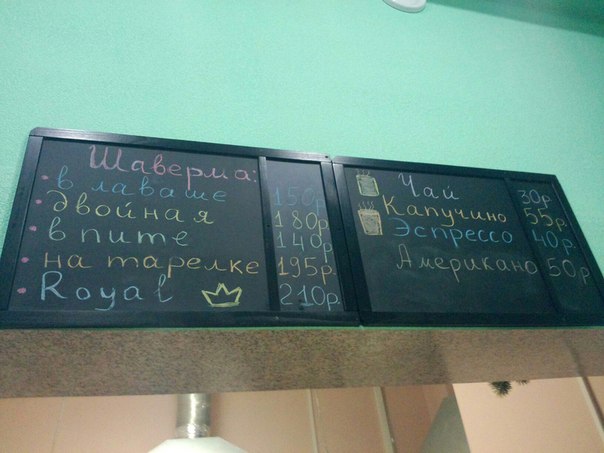 Шаверма:
• в лаваше 150р
• двойная 180р
• в пите 140р
• на тарелке 195р
• Royal 210р
Чай 30р
Капучино 55р
Эспрессо 40р
Американо 50р